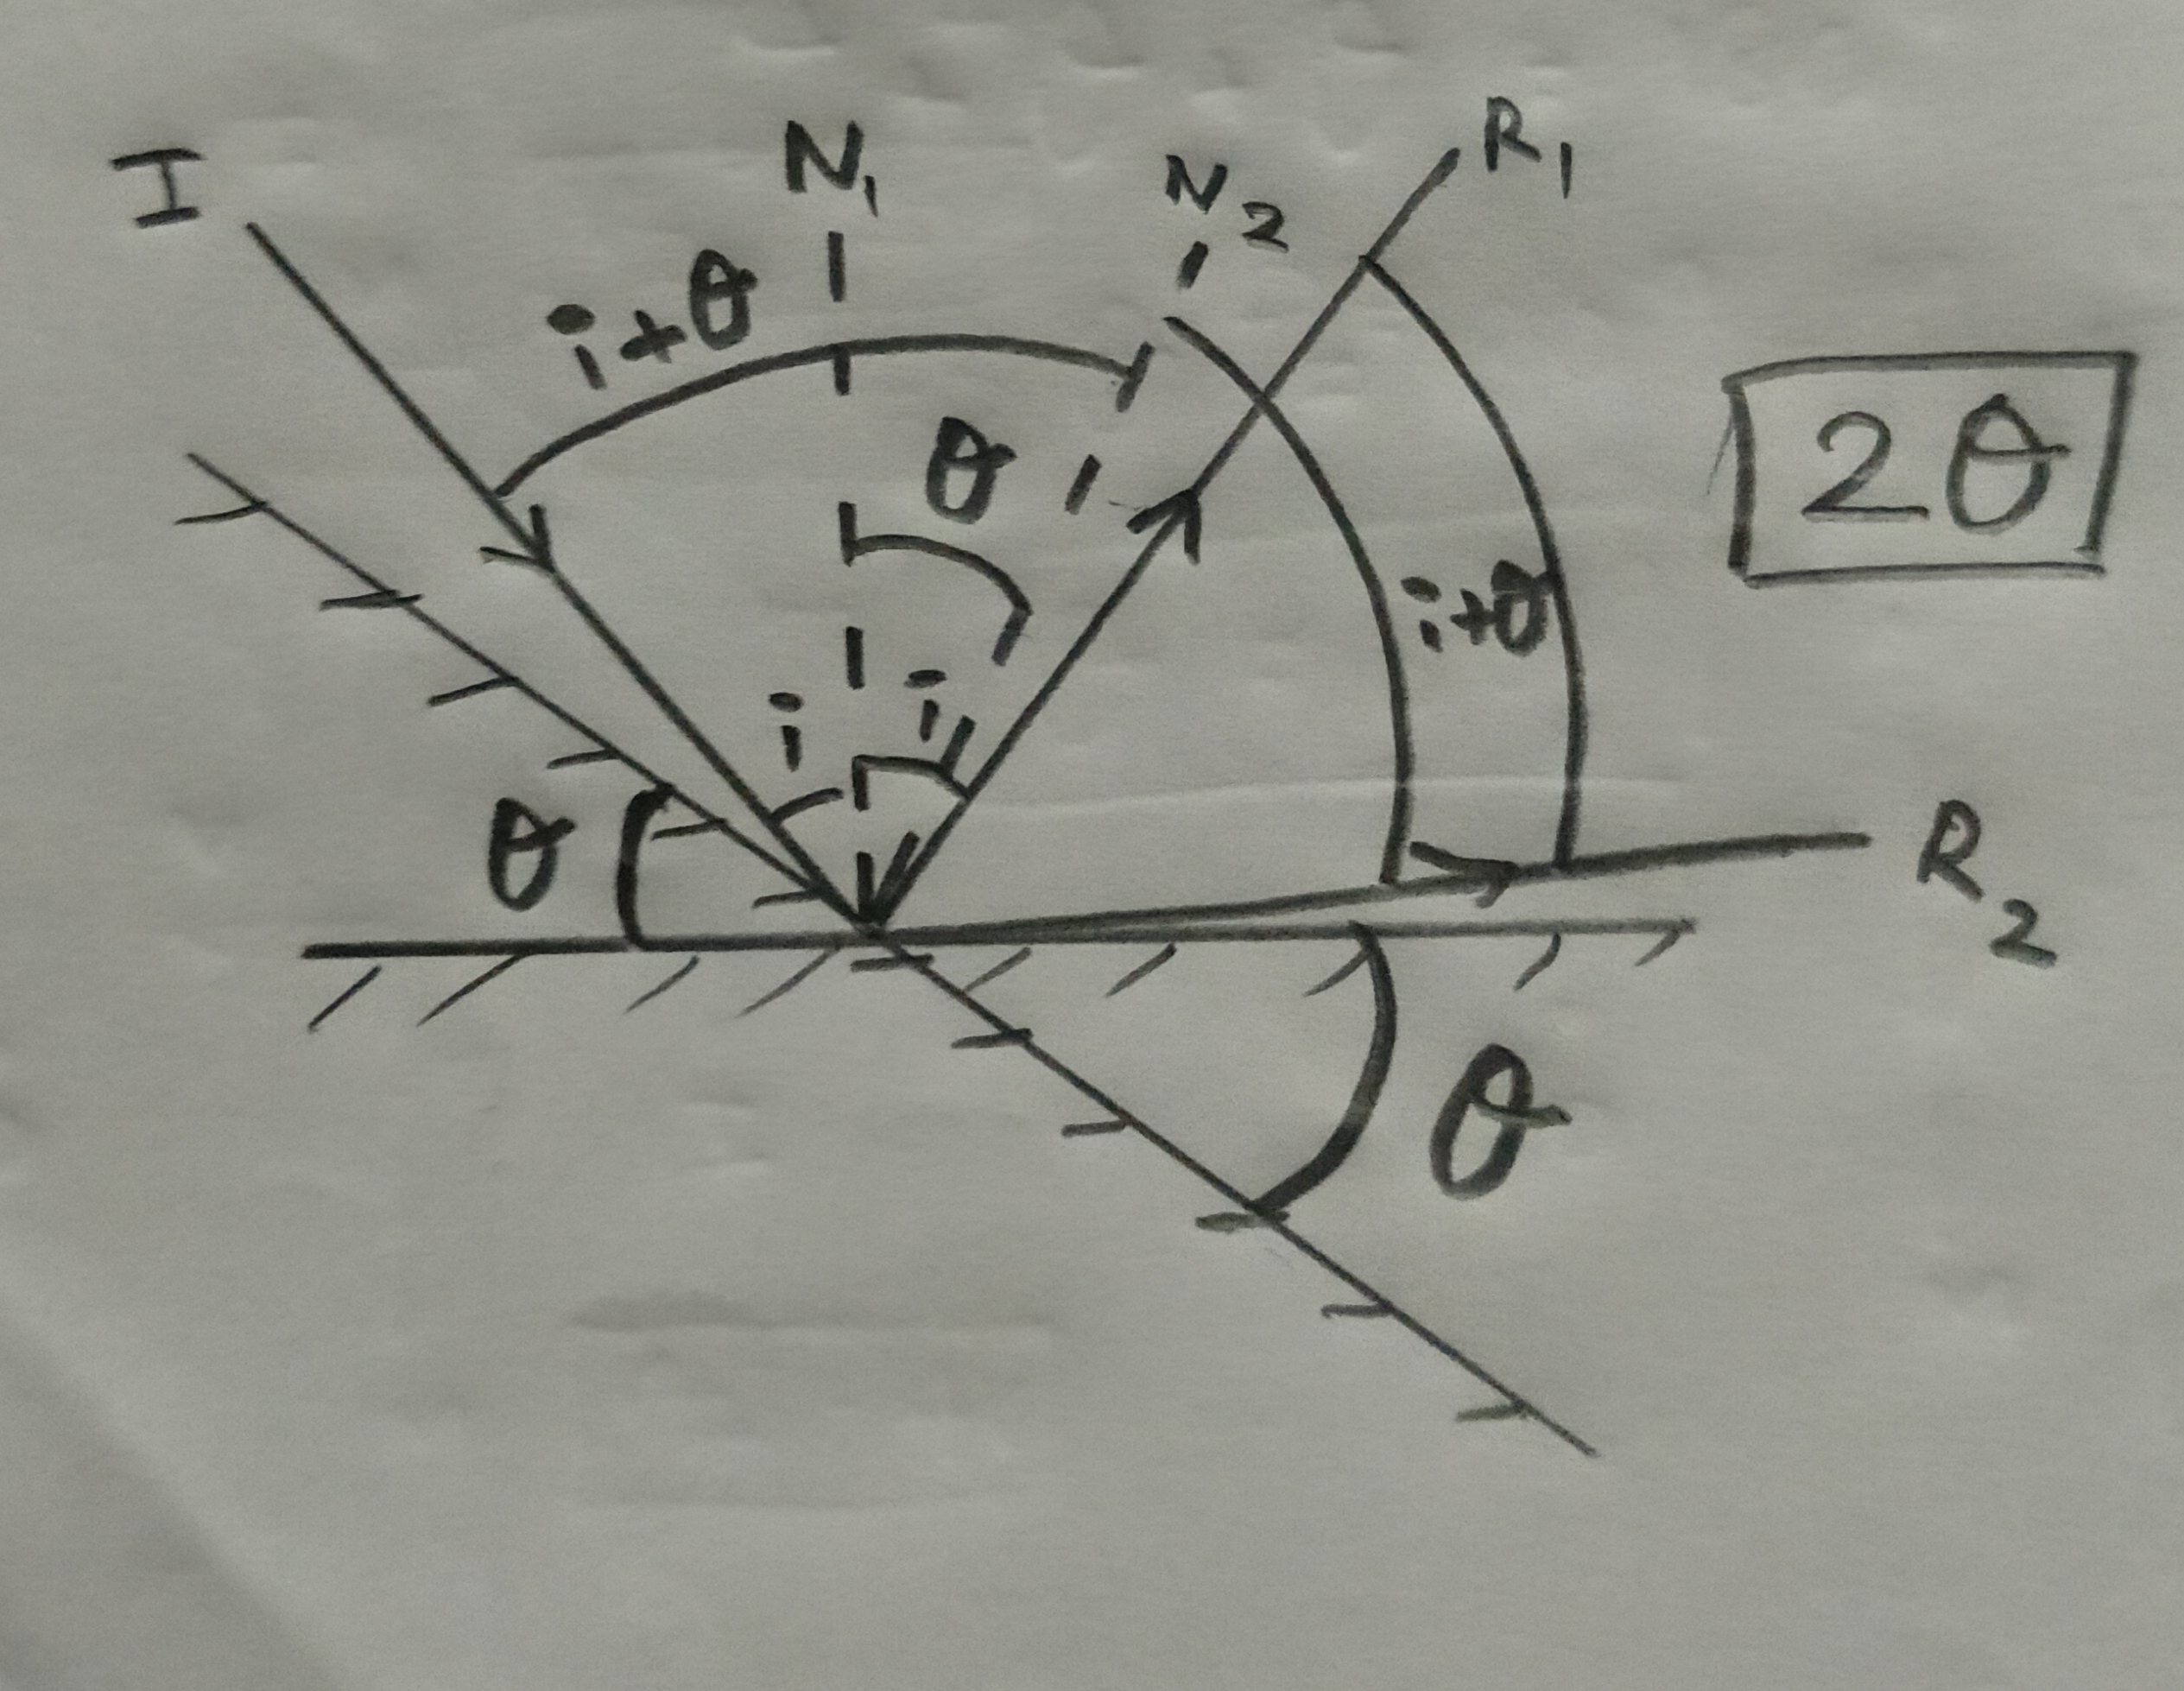 I
N₁
N₂
R₁
i+θ
θ
2θ
i+θ
i
i
θ
R₂
θ